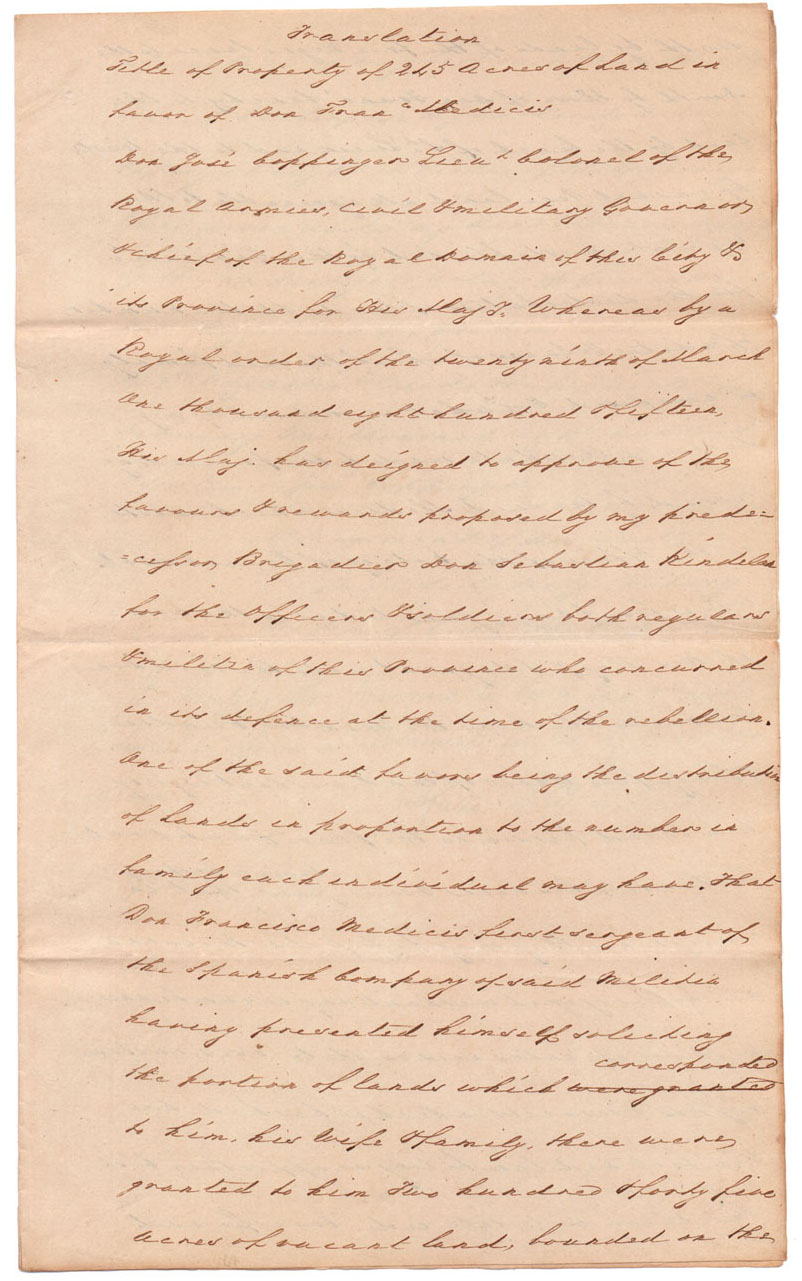 Translation
Title of Property of 245 Acres of Land in
favor of Don Fran.co Medicis
Don José Coppinger Lieut. Colonel of the
Royal Armies, Civil & military Governor
& chief of the Royal Domain of this City &
its Province for His Maj.y. Whereas by a
Royal order of the twenty ninth of March
One thousand eight hundred & fifteen,
His Maj. has deigned to approve of the
favours & rewards proposed by my prede=
=cessor Brigadier Don Sebastian Kindelan
for the Officers & soldiers both regulars
& militia of this Province who concurred
in its defence at the time of the rebellion.
One of the said favors being the distribution
of lands in proportion to the number in
family each individual may have. That
Don Francisco Medicis first sergeant of
the Spanish Company of said Militia
having presented himself soliciting
corresponded
the portion of lands which were granted
to him, his Wife & family, there were
granted to him Two hundred & forty five
acres of vacant land, bounded on the